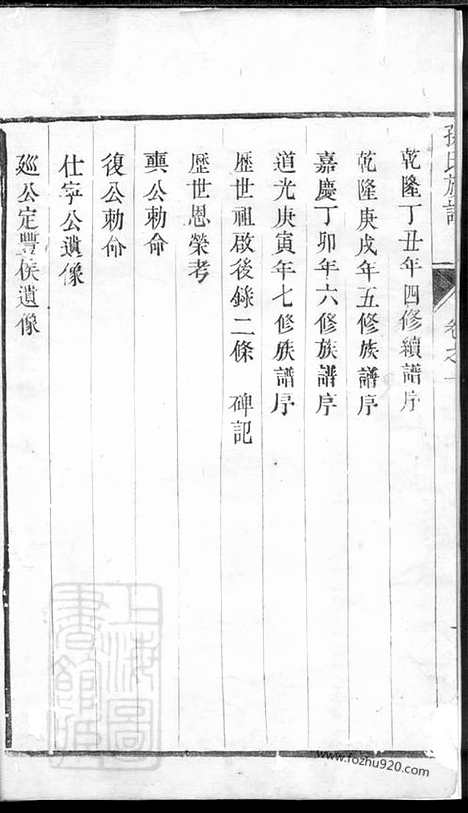 孫氏族譜 卷之一
乾隆丁丑年四修續譜序
乾隆庚戌年五修族譜序
嘉慶丁卯年六修族譜序
道光庚寅年七修族譜序
歷世祖啟後錄二條 碑記
歷世恩榮考
奭公勅命
復公勅命
仕寧公遺像
廵公定豐侯遺像
上海圖書館藏
www.fozhu920.com